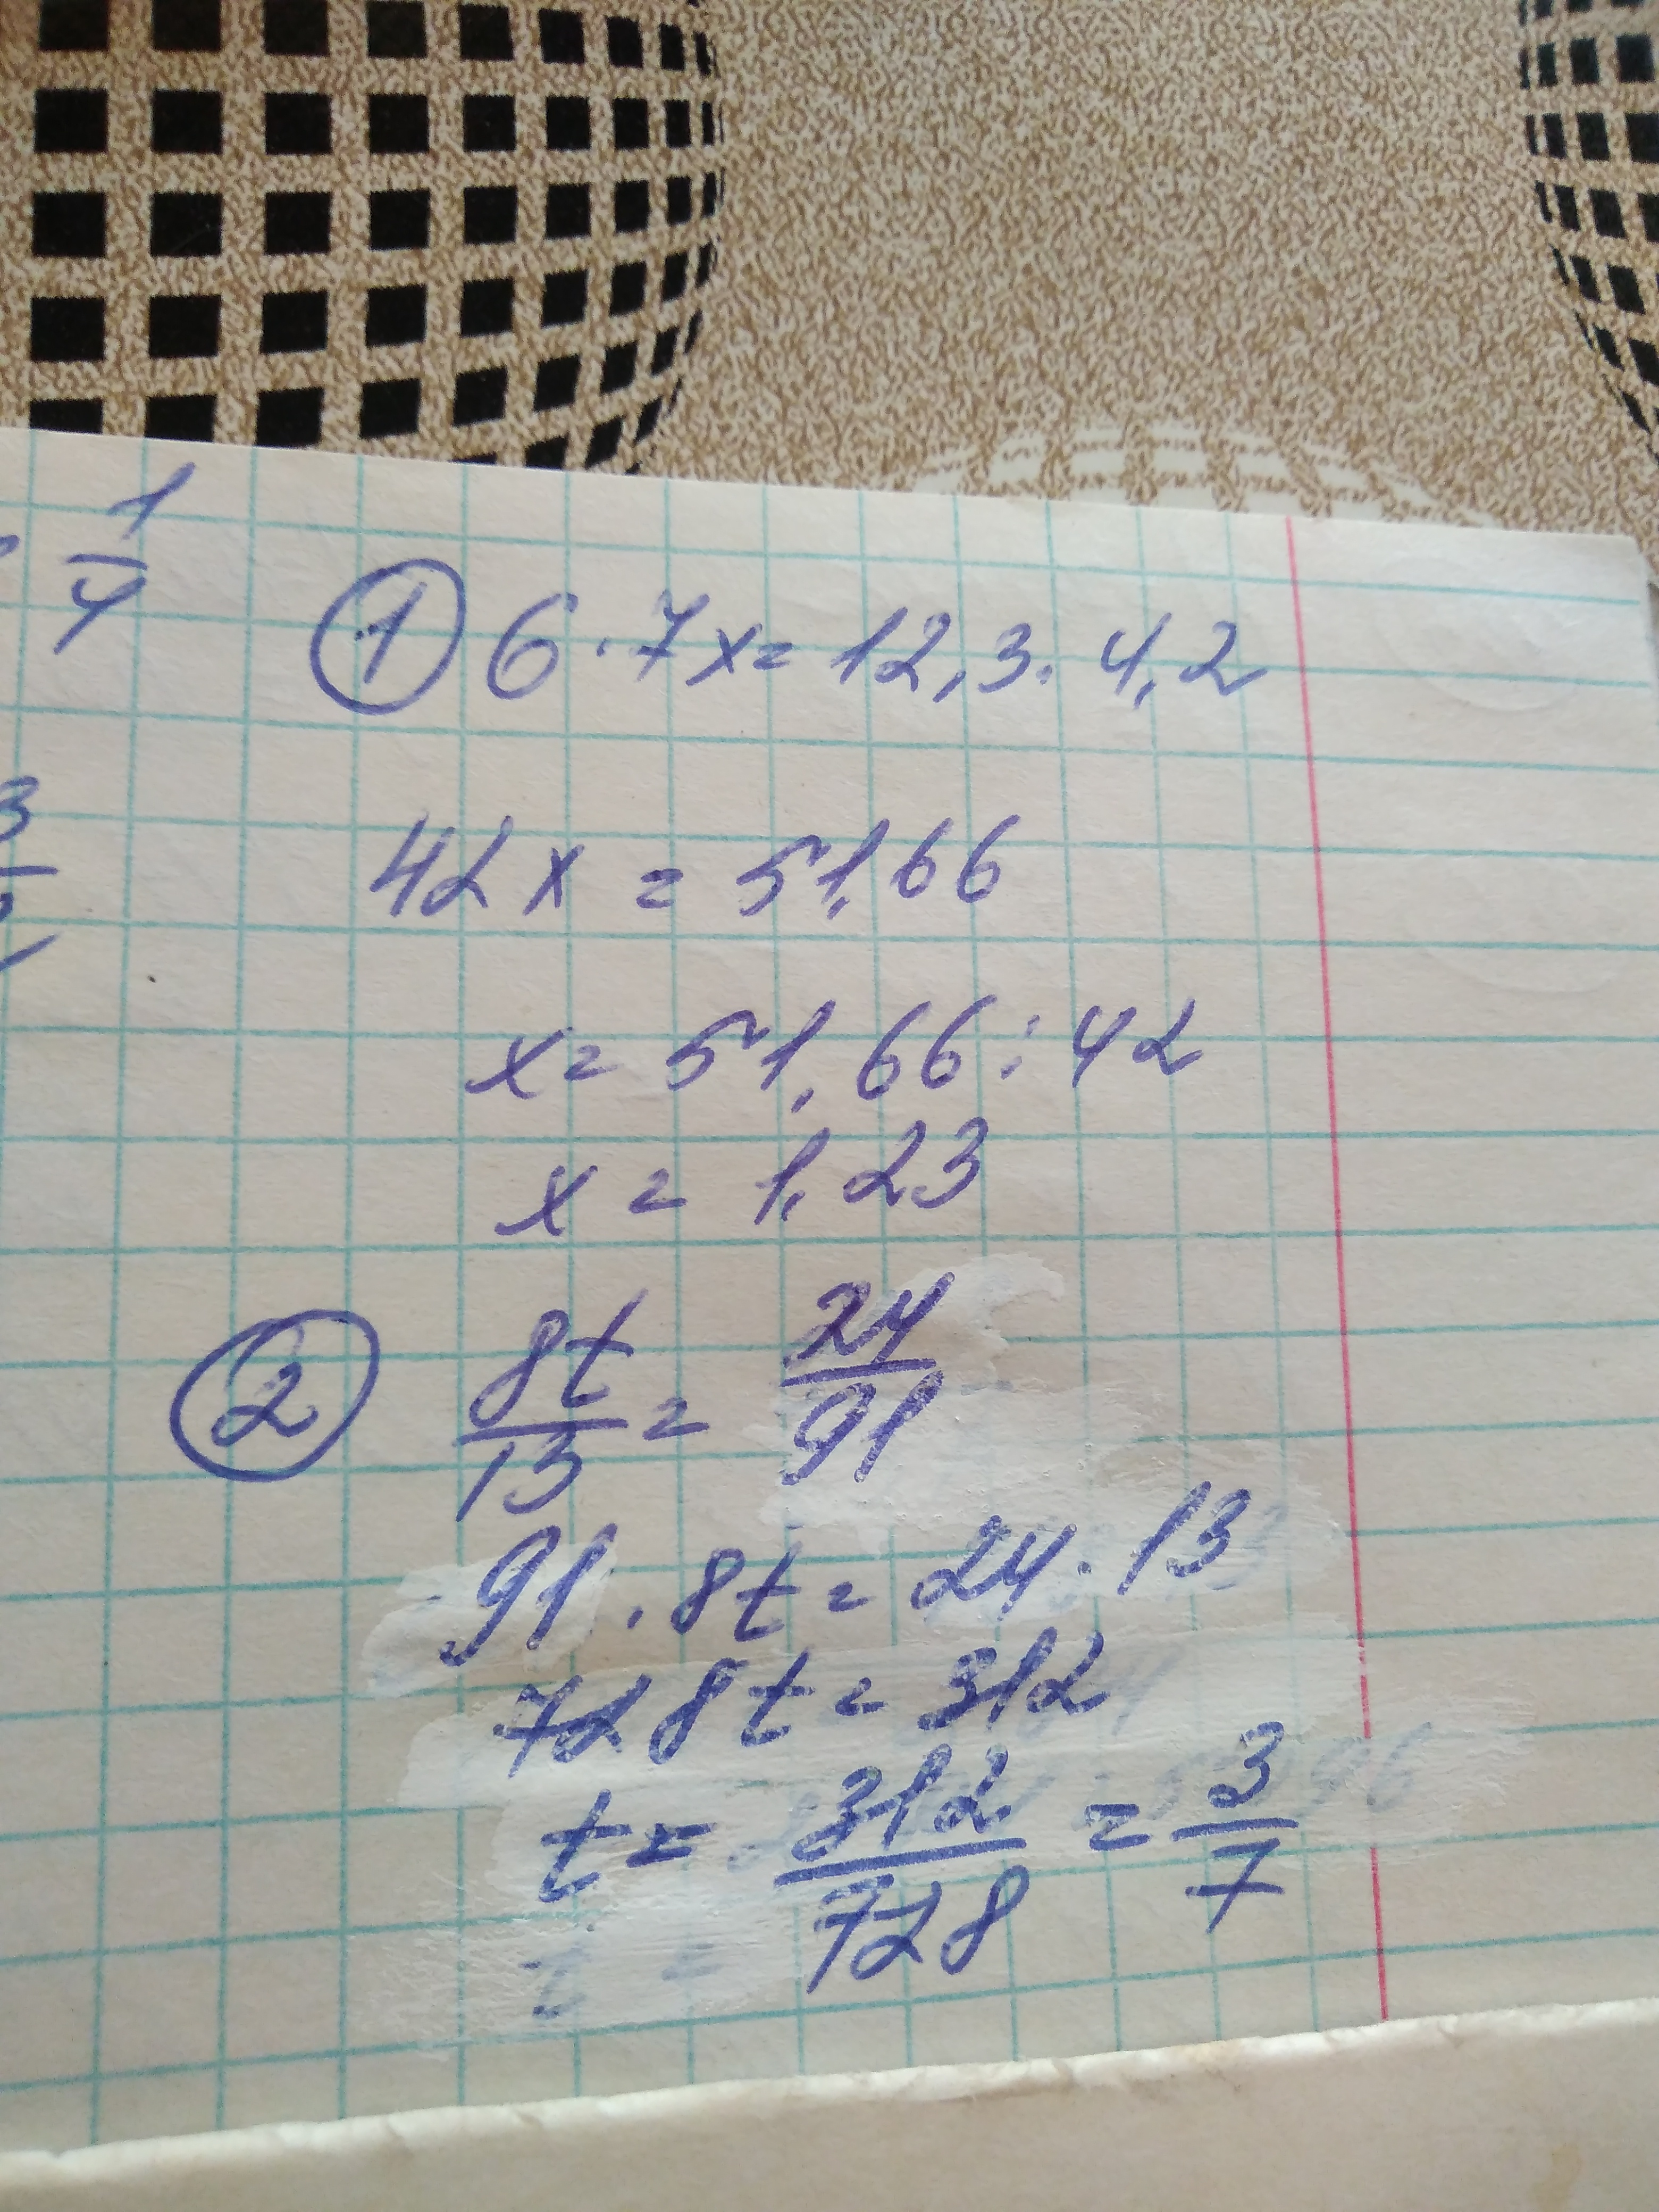 1/4
3
① 6·7x=12,3·4,2
42x=51,66
x=51,66:42
x=1,23
② 8t/13=24/91
91·8t=24·13
728t=312
t=312/728=3/7